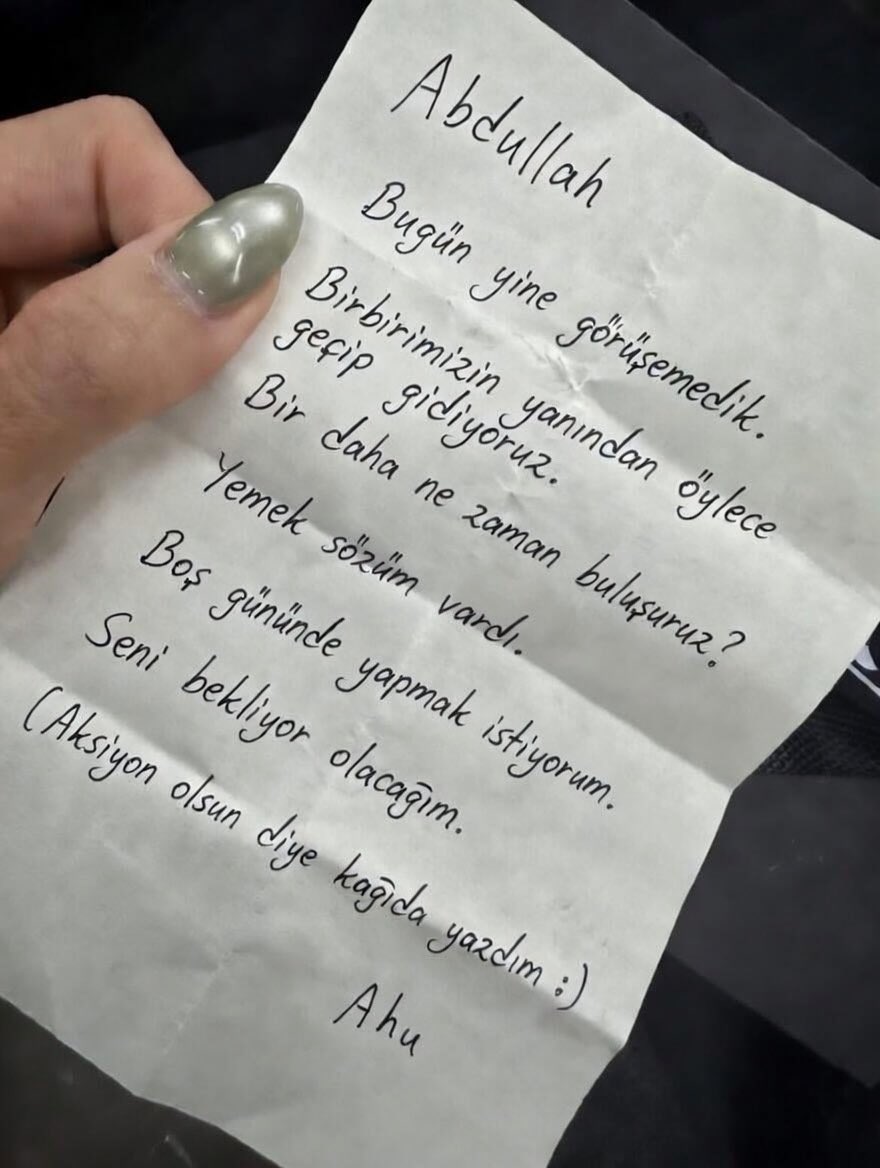 Abdullah
Bugün yine görüşemedik.
Birbirimizin yanından öylece
geçip gidiyoruz.
Bir daha ne zaman buluşuruz?
Yemek sözüm vardı.
Boş gününde yapmak istiyorum.
Seni bekliyor olacağım.
(Aksiyon olsun diye kağıda yazdım :)
Ahu